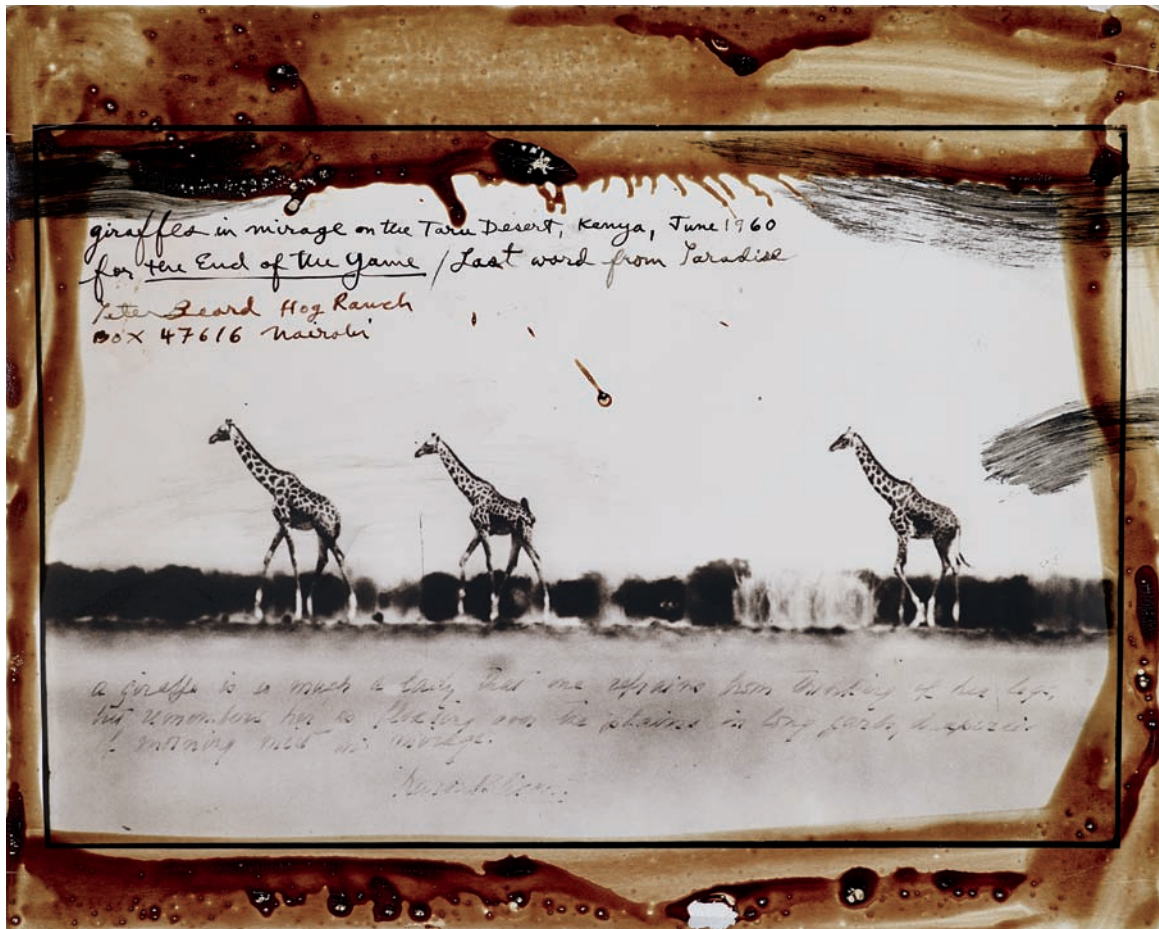 giraffes in mirage on the Taru Desert, Kenya, June 1960
for the End of the Game / Last word from Paradise
Peter Beard Hog Ranch
Box 47616 Nairobi
a giraffe is so much a lady that one refrains from thinking of her legs,
but remembers her as floating over the plains in long garb, draperies
of morning mist mirage.
Karen Blixen